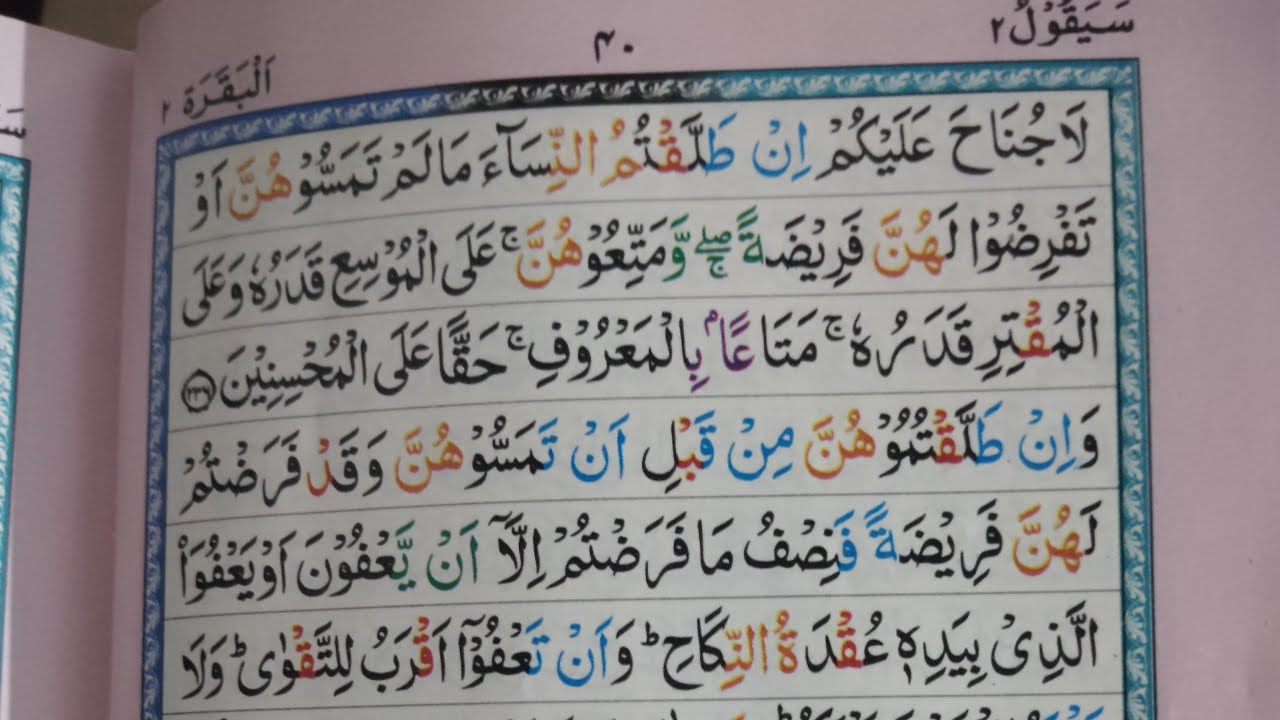 سَيَقُوْلُ ٢
٤٠
اَلْبَقَرَة ٢
لَا جُنَاحَ عَلَيْكُمْ اِنْ طَلَّقْتُمُ النِّسَآءَ مَا لَمْ تَمَسُّوْهُنَّ اَوْ
تَفْرِضُوْا لَهُنَّ فَرِيْضَةً ۖۚ وَّ مَتِّعُوْهُنَّ ۚ عَلَى الْمُوْسِعِ قَدَرُهٗ وَ عَلَى
الْمُقْتِرِ قَدَرُهٗ ۚ مَتَاعًاۢ بِالْمَعْرُوْفِ ۚ حَقًّا عَلَى الْمُحْسِنِيْنَ ٢٣٦
وَ اِنْ طَلَّقْتُمُوْهُنَّ مِنْ قَبْلِ اَنْ تَمَسُّوْهُنَّ وَ قَدْ فَرَضْتُمْ
لَهُنَّ فَرِيْضَةً فَنِصْفُ مَا فَرَضْتُمْ اِلَّاۤ اَنْ يَّعْفُوْنَ اَوْ يَعْفُوَا
الَّذِىْ بِيَدِهٖ عُقْدَةُ النِّكَاحِ ؕ وَ اَنْ تَعْفُوْۤا اَقْرَبُ لِلتَّقْوٰى ؕ وَ لَا